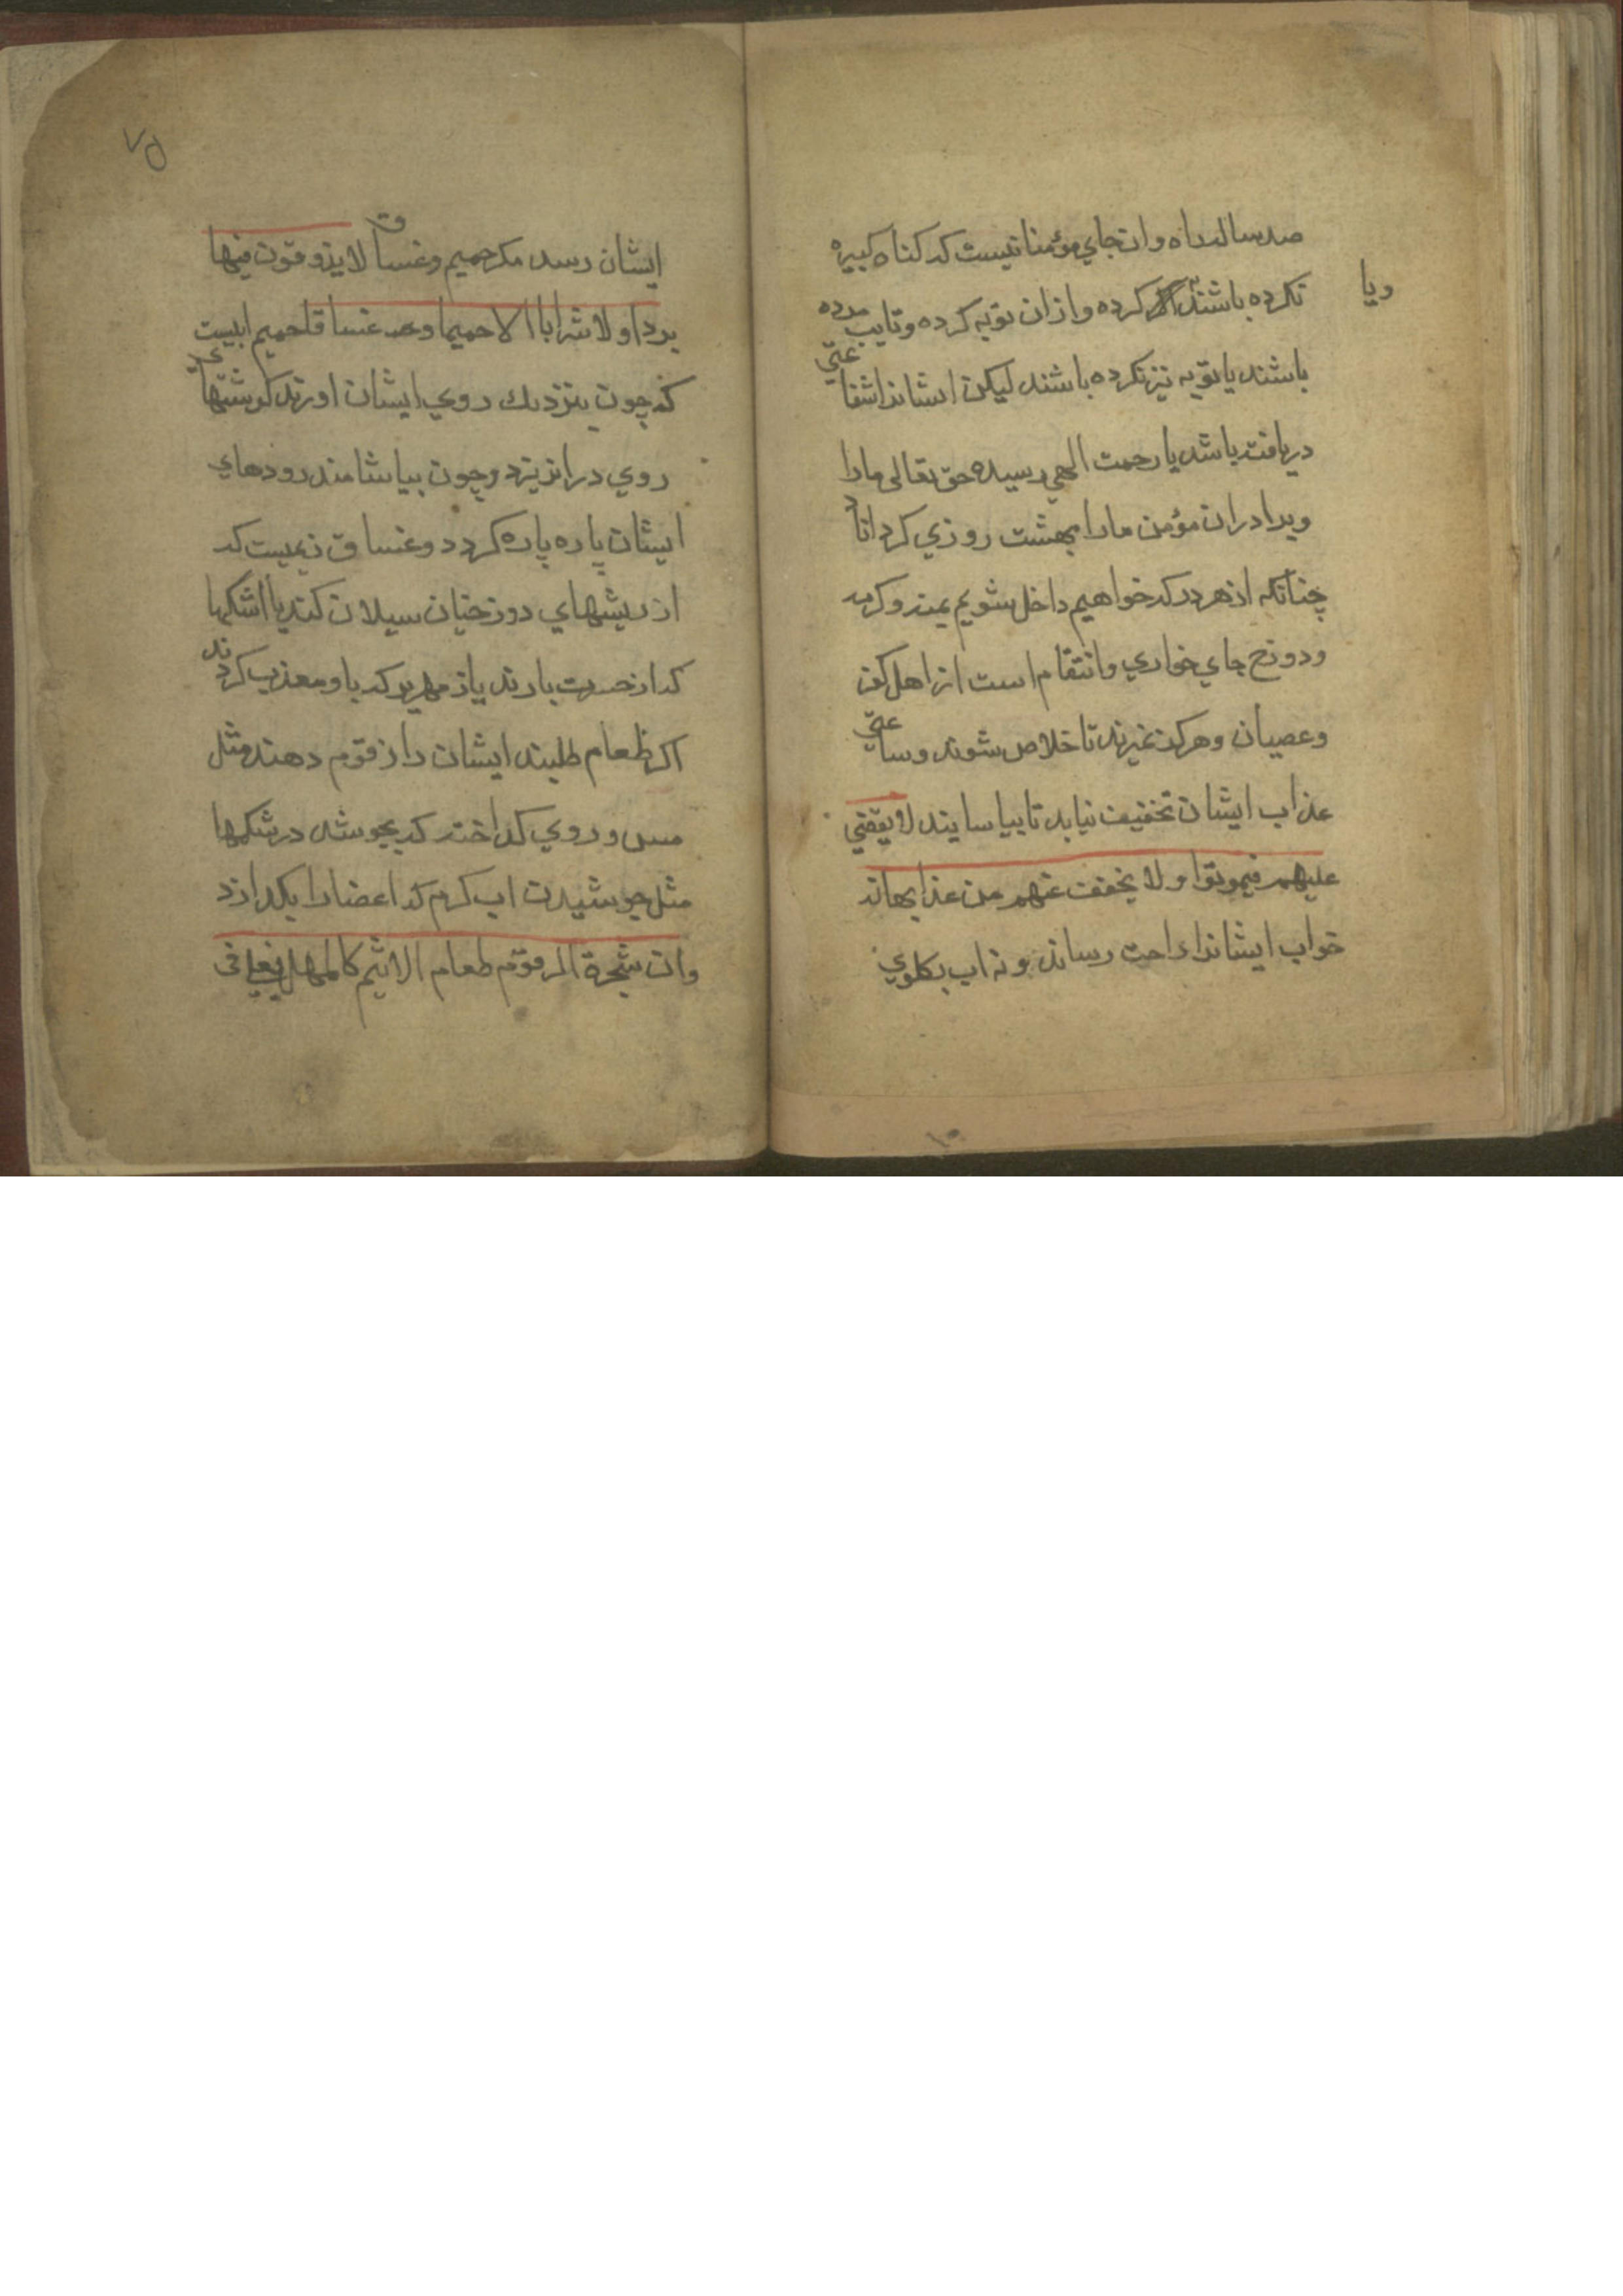 صد ساله راه وان جاي مؤمنانیست که کناه کبیره
نکرده باشند اکر کرده وازان توبه کرده وتایب مرده
ویا
باشند یا توبه نیز نکرده باشند لیکن ایشانرا شفاعتی
دریافته باشد یا رحمت الهي رسیده حق تعالی مارا
وبرادران مؤمن مارا بهشت روزي کرداناد
چنانکه از هر در که خواهیم داخل شویم بمنه وکرمه
ودوزخ جاي خواري وانتقام است از اهل کفر
وعصیان وهرکز نمیرند تا خلاص شوند وساعتی
عذاب ایشان تخفیف نیابد تا بیاسایند لا یقضي
علیهم فیموتوا ولا یخفف عنهم من عذابها نه
خواب ایشانرا راحت رساند ونه اب بکلوي
۷۵
ایشان رسد مکر حمیم وغساق لا یذوقون فیها
بردا ولا شرابا الا حمیما وغساقا حمیم ابیست
که چون بنزدیك روي ایشان اورند کوشتهاي
روي دران ریزد وچون بیاشامند رودهاي
ایشان پاره پاره کردد وغساق ریمیست که
از ریشهاي دوزخیان سیلان کند یا اشکها
که از حسرت بارند یا زمهریر که باو معذب کردند
اکر طعام طلبند ایشان را زقوم دهند مثل
مس وروي کداخته که بجوشد در شکمها
مثل جوشیدن اب کرم که اعضا را بکدازد
وان شجرة الزقوم طعام الاثیم کالمهل یغلي فی